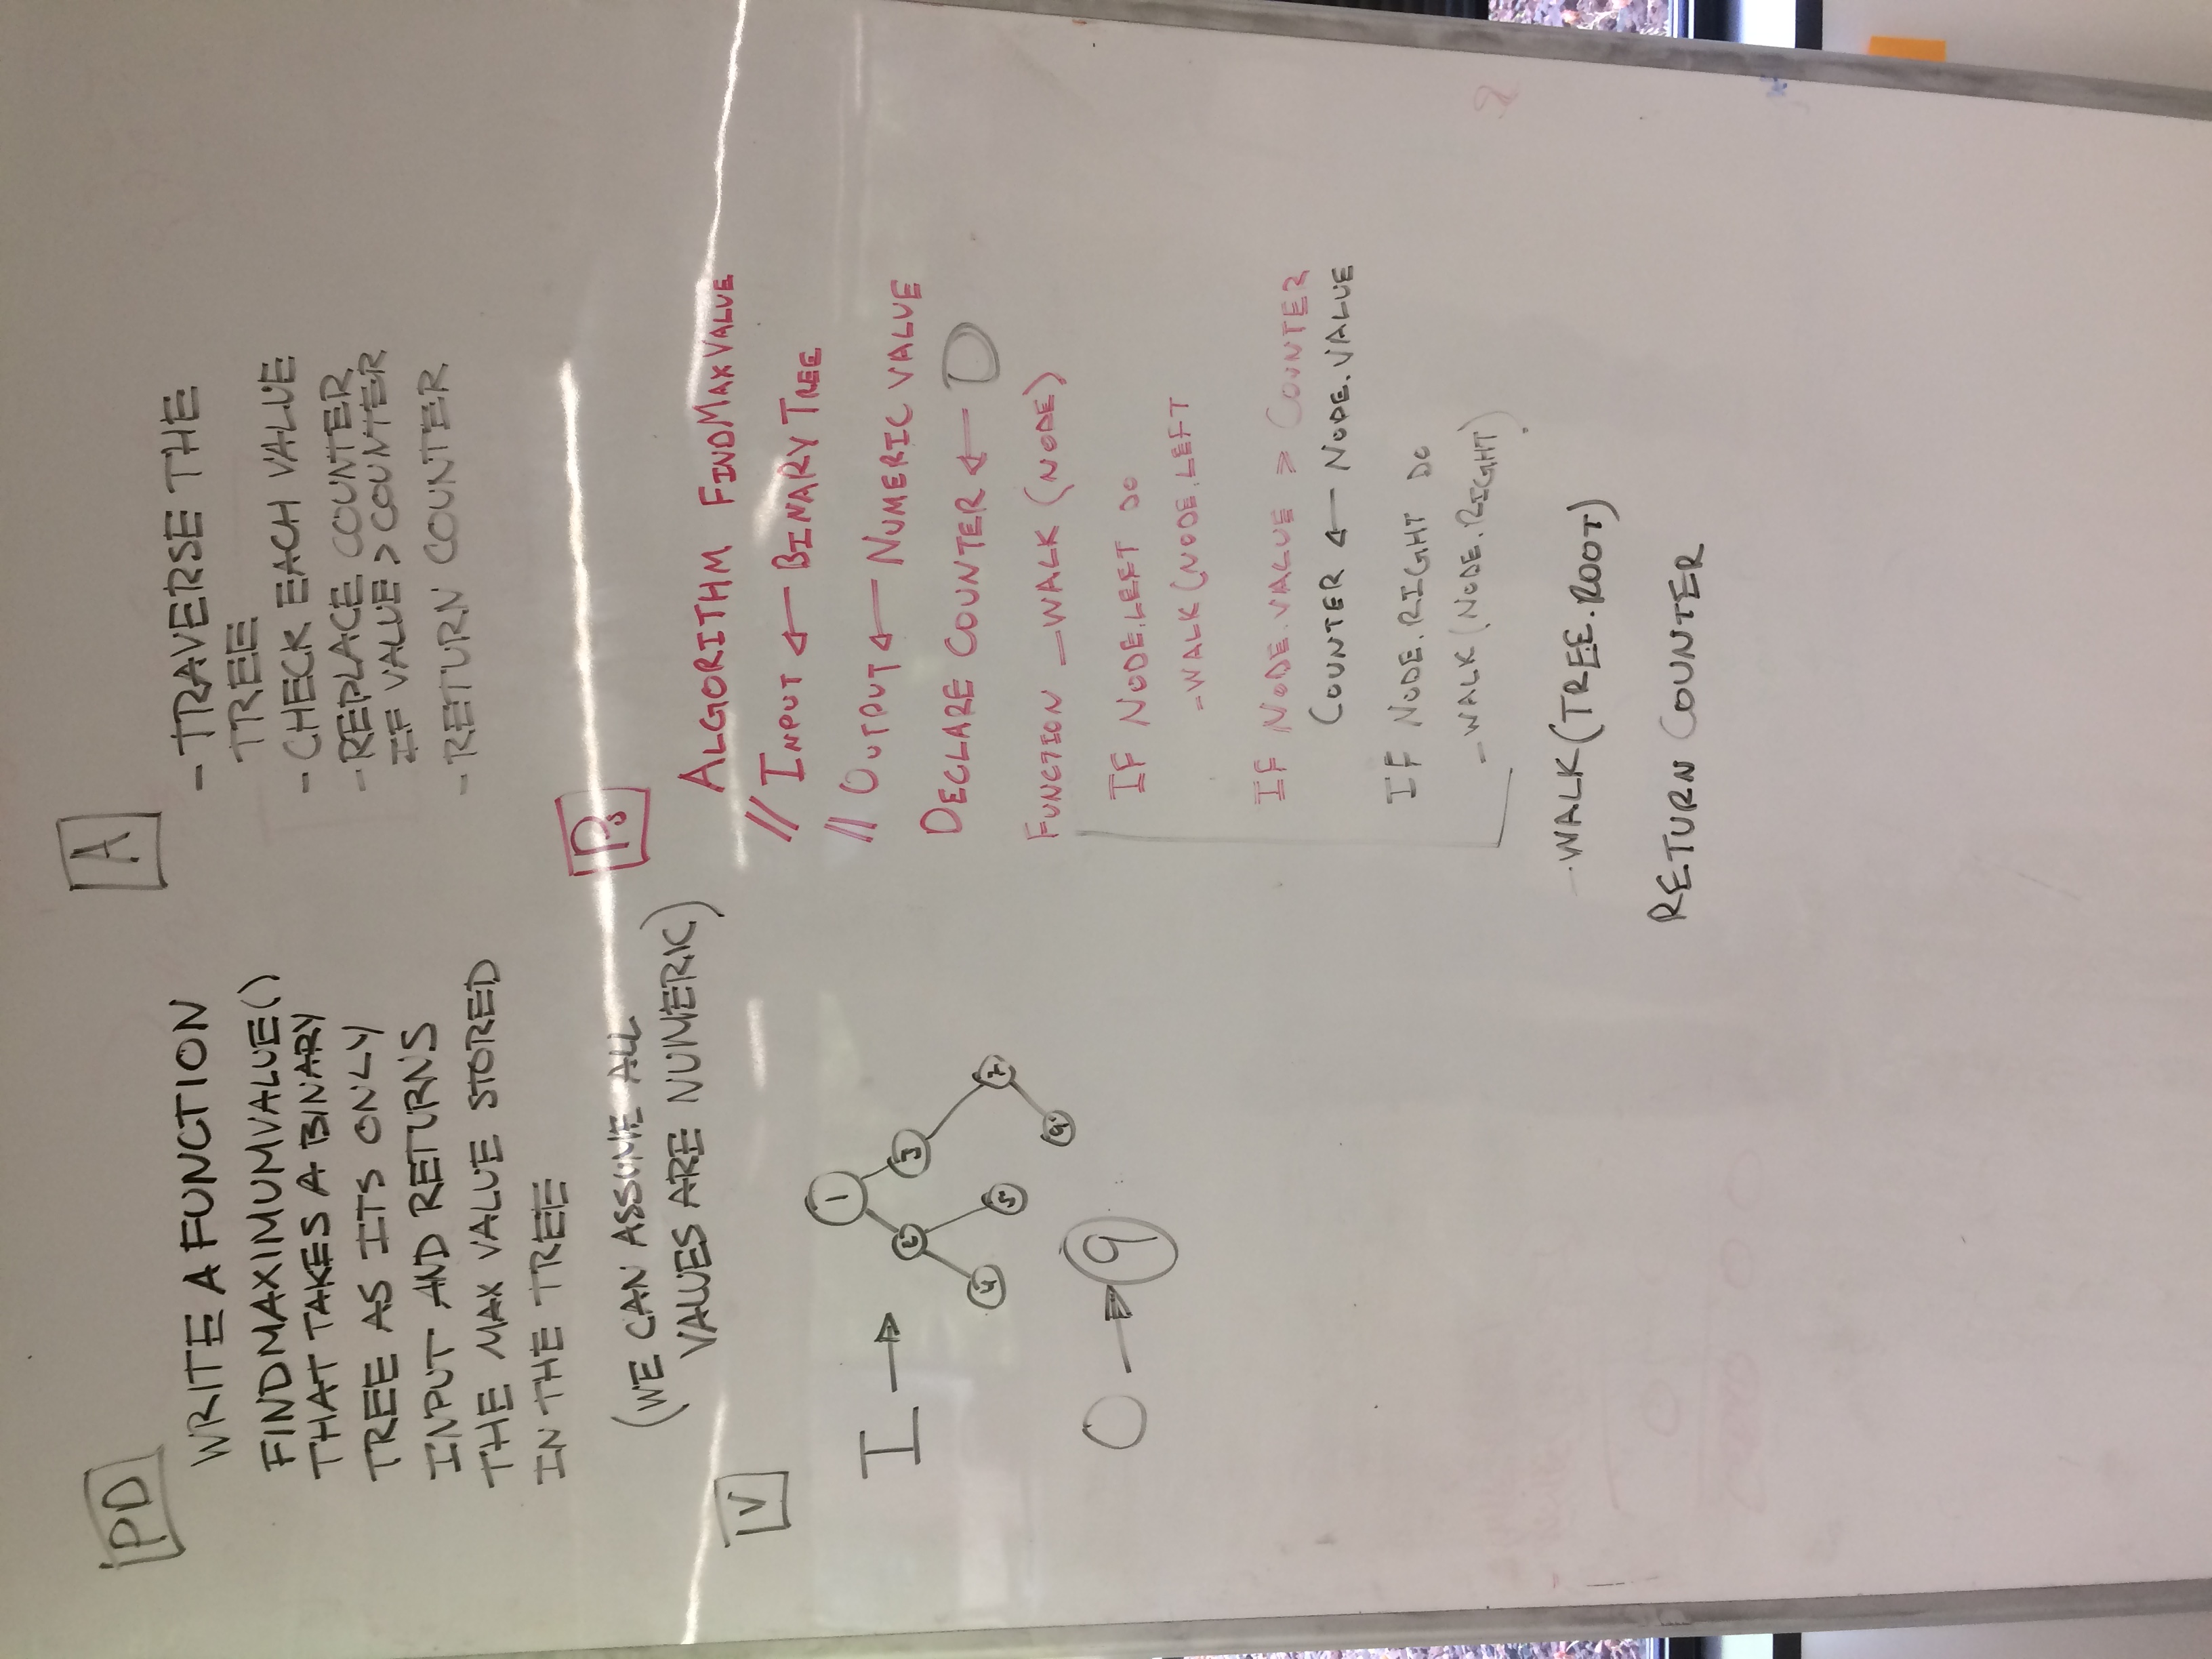 PD
WRITE A FUNCTION
FINDMAXIMUMVALUE()
THAT TAKES A BINARY
TREE AS ITS ONLY
INPUT AND RETURNS
THE MAX VALUE STORED
IN THE TREE
(WE CAN ASSUME ALL
VALUES ARE NUMERIC)
V
I →
1
3
4
5
9
O → 9
A
- TRAVERSE THE
TREE
- CHECK EACH VALUE
- REPLACE COUNTER
IF VALUE > COUNTER
- RETURN COUNTER
Ps
ALGORITHM FINDMAXVALUE
// INPUT ← BINARY TREE
// OUTPUT ← NUMERIC VALUE
DECLARE COUNTER ← 0
FUNCTION _WALK (NODE)
IF NODE.LEFT DO
_WALK(NODE.LEFT
IF NODE.VALUE > COUNTER
COUNTER ← NODE.VALUE
IF NODE.RIGHT DO
_WALK(NODE.RIGHT)
_WALK(TREE.ROOT)
RETURN COUNTER